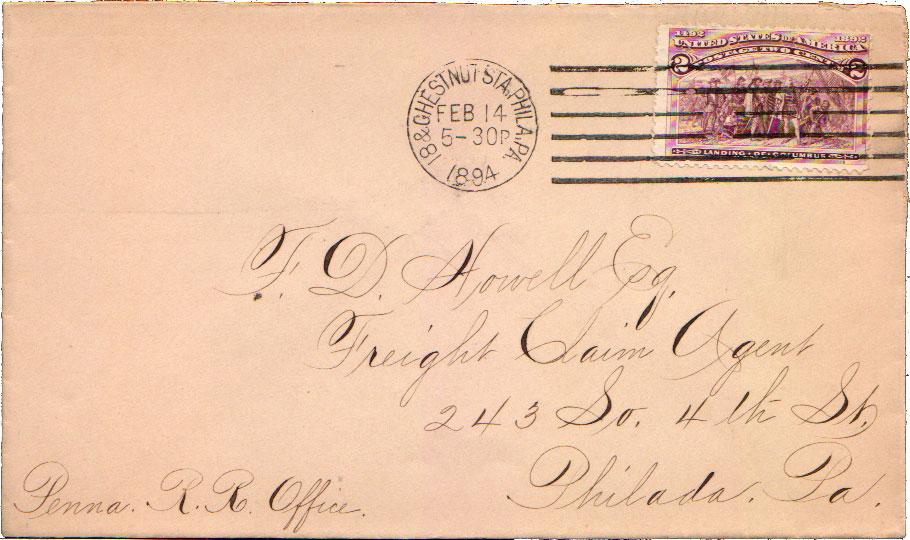 1492 1892
UNITED STATES OF AMERICA
POSTAGE TWO CENTS
2 2
LANDING OF COLUMBUS
18 & CHESTNUT STA, PHILA, PA.
FEB 14
5-30P
1894
F. D. Howell Esq.
Freight Claim Agent
243 So. 4th St.
Philada. Pa.
Penna. R. R. Office.